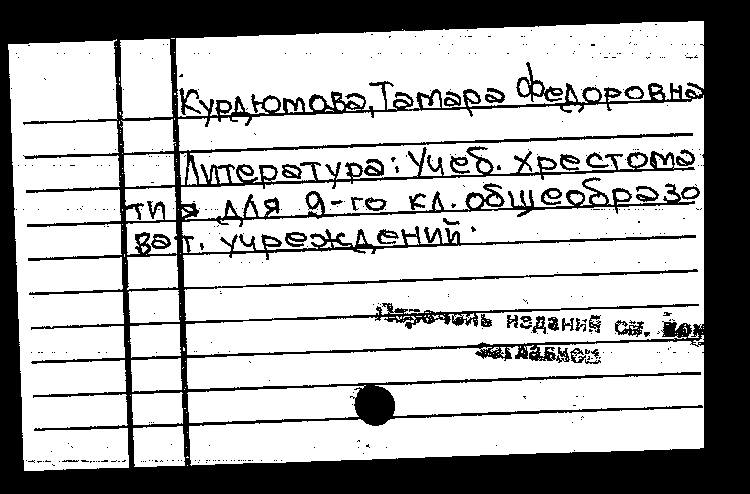 Курдюмова, Тамара Федоровна
Литература: Учеб. хрестома
тия для 9-го кл. общеобразо
ват. учреждений.
Перечень изданий см.
заглавием